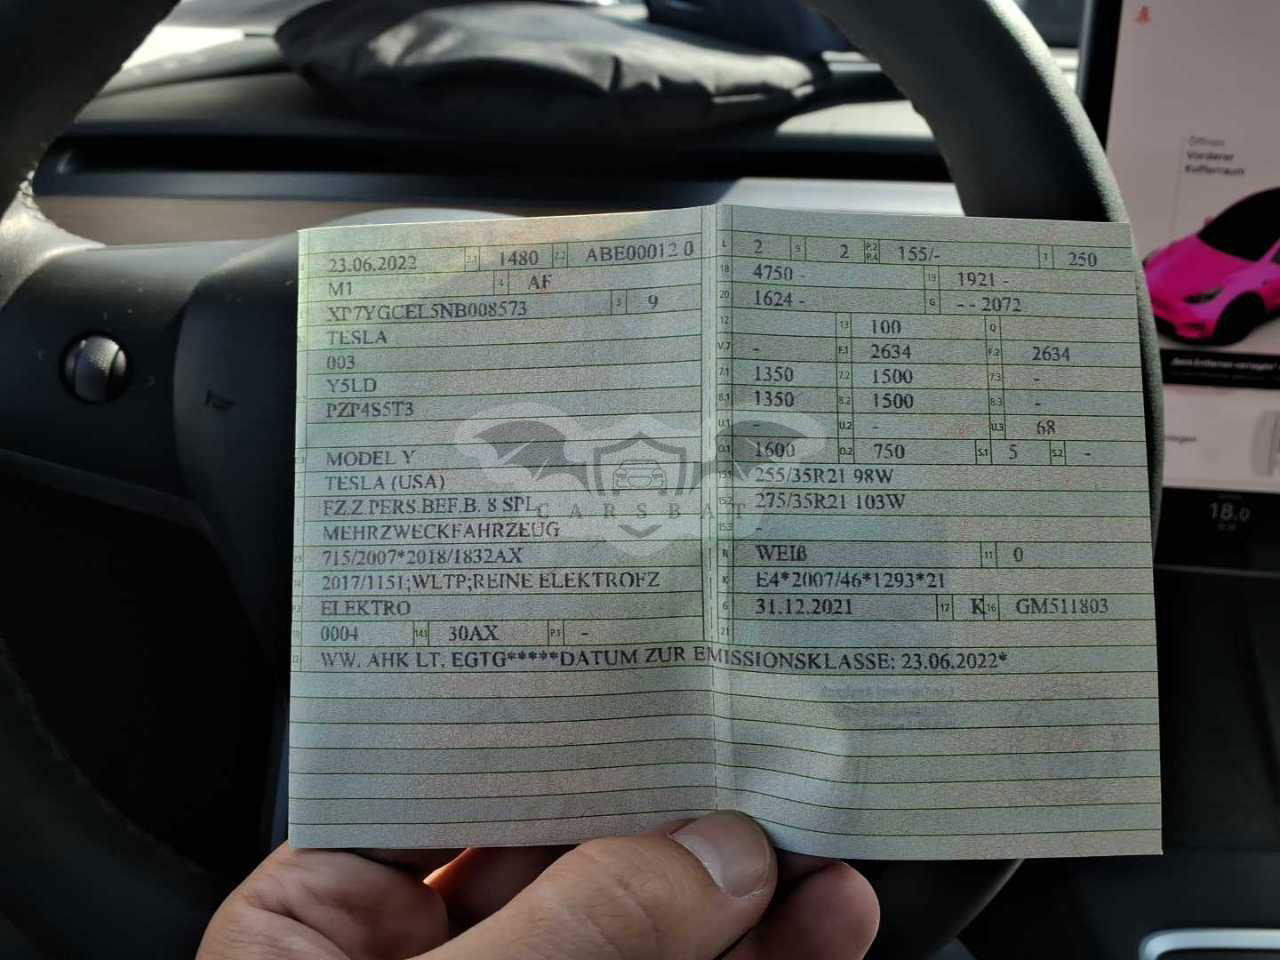 23.06.2022 2.1 1480 2.2 ABE00012 0
M1 4 AF
XP7YGCEL5NB008573 3 9
TESLA
003
Y5LD
PZP4S5T3
MODEL Y
TESLA (USA)
FZ.Z.PERS.BEF.B. 8 SPL
MEHRZWECKFAHRZEUG
715/2007*2018/1832AX
2017/1151;WLTP;REINE ELEKTROFZ
ELEKTRO
0004 14.1 30AX P.1 -
L 2 9 2 P.2 P.4 155/- T 250
18 4750 - 19 1921 -
20 1624 - G - - 2072
12 13 100 Q
V.7 - F.1 2634 F.2 2634
7.1 1350 7.2 1500 7.3 -
8.1 1350 8.2 1500 8.3 -
U.1 - U.2 - U.3 68
O.1 1600 O.2 750 S.1 5 S.2 -
15.1 255/35R21 98W
15.2 275/35R21 103W
15.3 -
R WEIß 11 0
K E4*2007/46*1293*21
6 31.12.2021 17 K 16 GM511803
21
22 WW. AHK LT. EGTG*****DATUM ZUR EMISSIONSKLASSE: 23.06.2022*
CARSBAT
Öffnen
Vorderer
Kofferraum
18.0